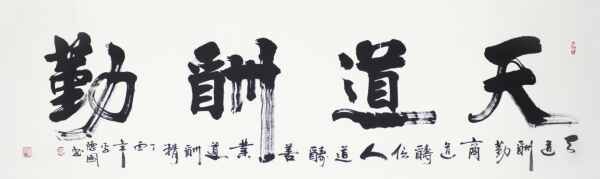 天道酬勤
天道酬勤商道酬信人道酬善業道酬精丁酉年